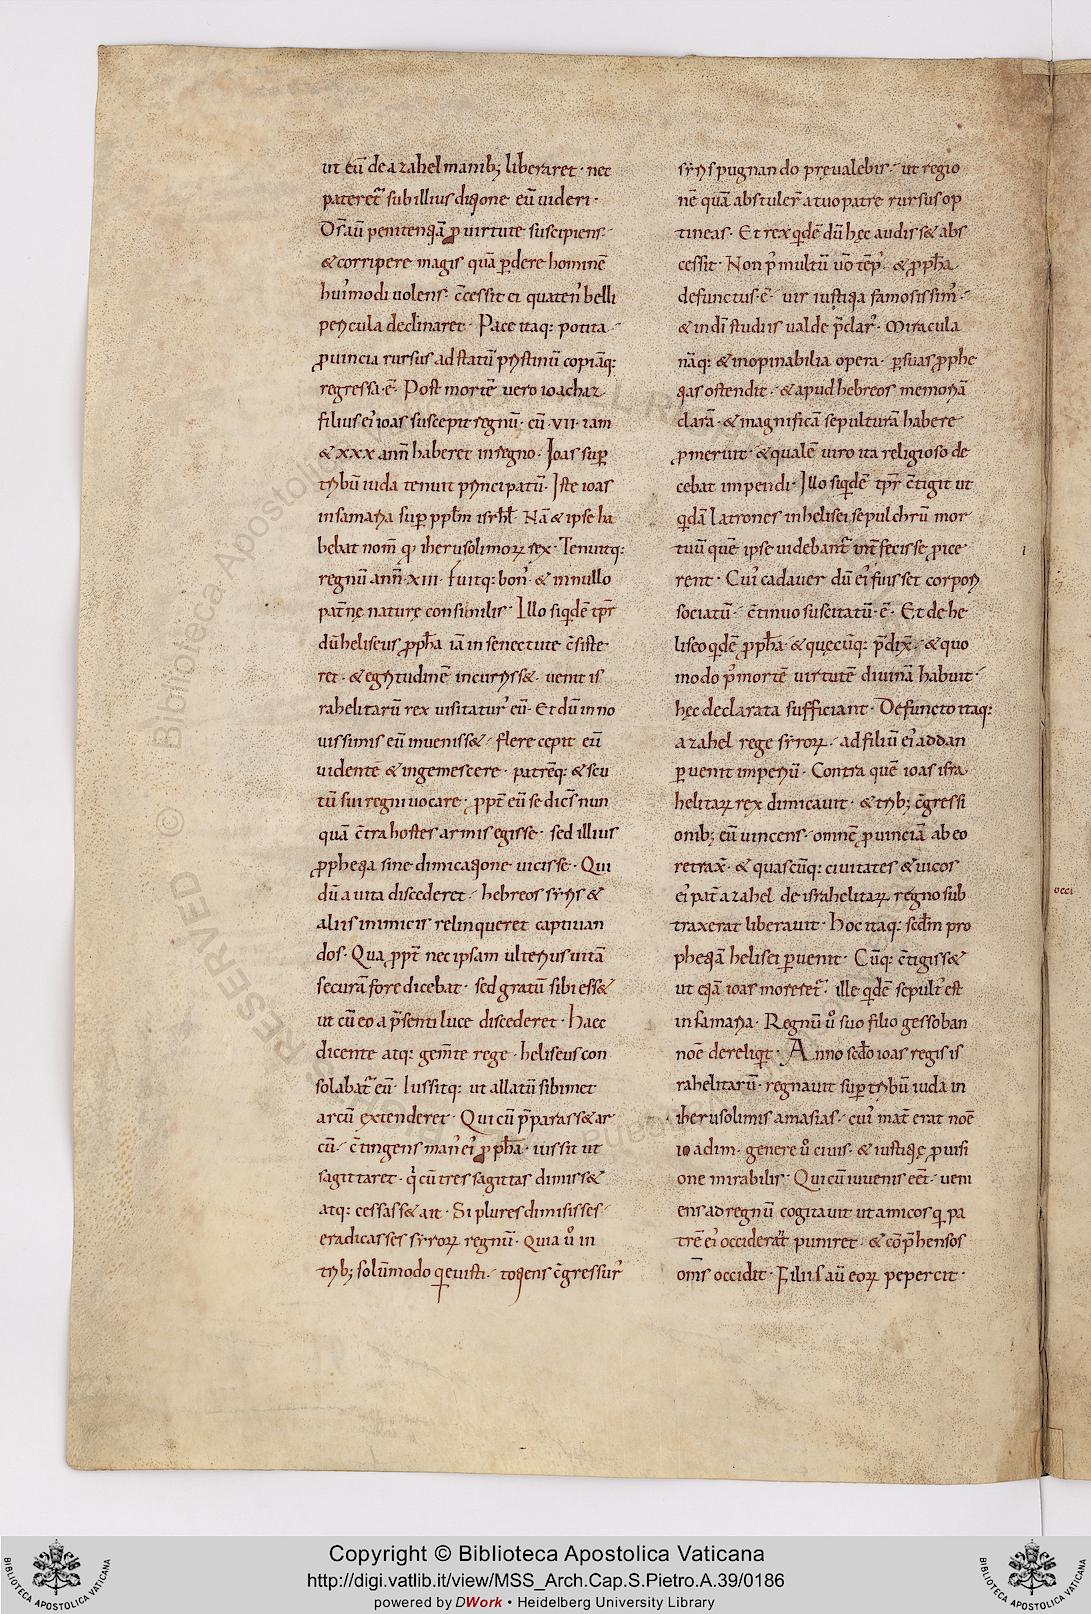 ut eū de azahel manib; liberaret· nec
pateret᷑ sub illius ditione eū uideri·
Ds̄ aū penitentiā ꝓ uirtute suscipiens·
& corripere magis quā ꝑdere hominē
hui᷒modi uolens· c̄cessit ei quaten᷒ belli
pericula declinaret· Pace itaq: potita·
ꝓuincia rursus ad statū pristinū copiāq:
regressa·ē· Post mortē uero ioachaz
filius ei᷒ ioas suscepit regnū· cū ·VII· iam
& XXX annī haberet in regno· Ioas suꝑ
tribū iuda tenuit principatū· Iste ioas
in samaria suꝑ pp̄lm isrl̄· Nā & ipse ha
bebat nom̄ qi iherusolimoꝝ rex· Tenuitq:
regnū ann̄·XIII· fuitq: bon᷒· & in nullo
pat̄nę naturę consimilis· Illo siqdē tp̄r
dū heliseus ꝓph̄a iā in senectute c̄siste
ret· & egritudinē incurriss&· uenit is
rahelitarū rex uisitatur᷒ eū· Et dū in no
uissimis eū inueniss&· flere cepit eū
uidente & ingemescere· patrēq: & scu
tū sui regni uocare· ꝓpt̄ eū se dicēs nun
quā c̄tra hostes armis egisse· sed illius
ꝓphetia sine dimicatione uicisse· Qui
dū a uita discederet· hebreos siris &
aliis inimicis relinqueret captiuan
dos· Qua ꝓpt̄ nec ipsam ulterius uitā
securā fore dicebat· sed gratū sibi ess&
ut cū eo a p̄senti luce discederet· Haec
dicente atq: gem̄te rege· heliseus con
solabat᷑ eū· Iussitq: ut allatū sibimet
arcū extenderet· Qui cū p̄parass& ar
cū· c̄tingens man᷒ ei᷒ ꝓph̄a· iussit ut
sagittaret· qi cū tres sagittas dimiss&
atq: cessass& ait· Si plures dimisisses
eradicasses siroꝝ regnū· Quia ŭ in
trib; solūmodo quieuisti· totiens c̄gressur᷒
siris pugnando preualebis· ut regio
nē quā abstuler̄ a tuo patre rursus op
tineas· Et rex qdē dū hęc audiss& abs
cessit· Non p᷒ multū ūo tēp᷒· & ꝓph̄a
defunctus·ē· uir iustitia famosissim᷒·
& in dī studiis ualde p̄clar᷒· Miracula
nāq: & inopinabilia opera· ꝑ suas ꝓphe
tias ostendit· & apud hebreos memoriā
clarā· & magnificā sepulturā habere
ꝓmeruit· & qualē uiro ita religioso de
cebat impendi· Illo siqdē tp̄r c̄tigit ut
qdā latrones in helisei sepulchrū mor
tuū quē ipse uidebant᷑ int̄fecisse ꝓice
rent· Cui᷒ cadauer dū ei᷒ fuisset corpori
sociatū· c̄tinuo suscitatū·ē· Et de he
liseo qdē ꝓph̄a· & quęcūq: p̄dix̄· & quo
modo p᷒ mortē uirtutē diuinā habuit·
hęc declarata sufficiant· Defuncto itaq:
azahel rege siroꝝ· ad filiū ei᷒ addan
ꝑuenit imperiū· Contra quē ioas isra
helitaꝝ rex dimicauit· & trib; c̄gressi
onib; eū uincens· omnē ꝓuinciā ab eo
retrax̄· & quascūq: ciuitates & uicos
ei᷒ pat̄ azahel de israhelitaꝝ regno sub
traxerat liberauit· Hoc itaq: scd̄m pro
phetiā helisei ꝑuenit· Cūq: c̄tigiss&
ut etiā ioas moreret᷑· ille qdē sepult᷒ est
in samaria· Regnū ŭ suo filio gessoban
noē dereliqt· Anno scd̄o ioas regis is
rahelitarū· regnauit suꝑ tribū iuda in
iherusolimis amasias· cui᷒ mat̄ erat noē
ioadim· genere ŭ ciuis· & iustitię ꝓuisi
one mirabilis· Qui cū iuuenis eēt· ueni
ens ad regnū cogitauit ut amicos q pa
trē ei᷒ occiderāt puniret· & cōp̄hensos
om̄s occidit· Filiis aū eoꝝ pepercit·
occi
Copyright © Biblioteca Apostolica Vaticana
http://digi.vatlib.it/view/MSS_Arch.Cap.S.Pietro.A.39/0186
powered by DWork • Heidelberg University Library